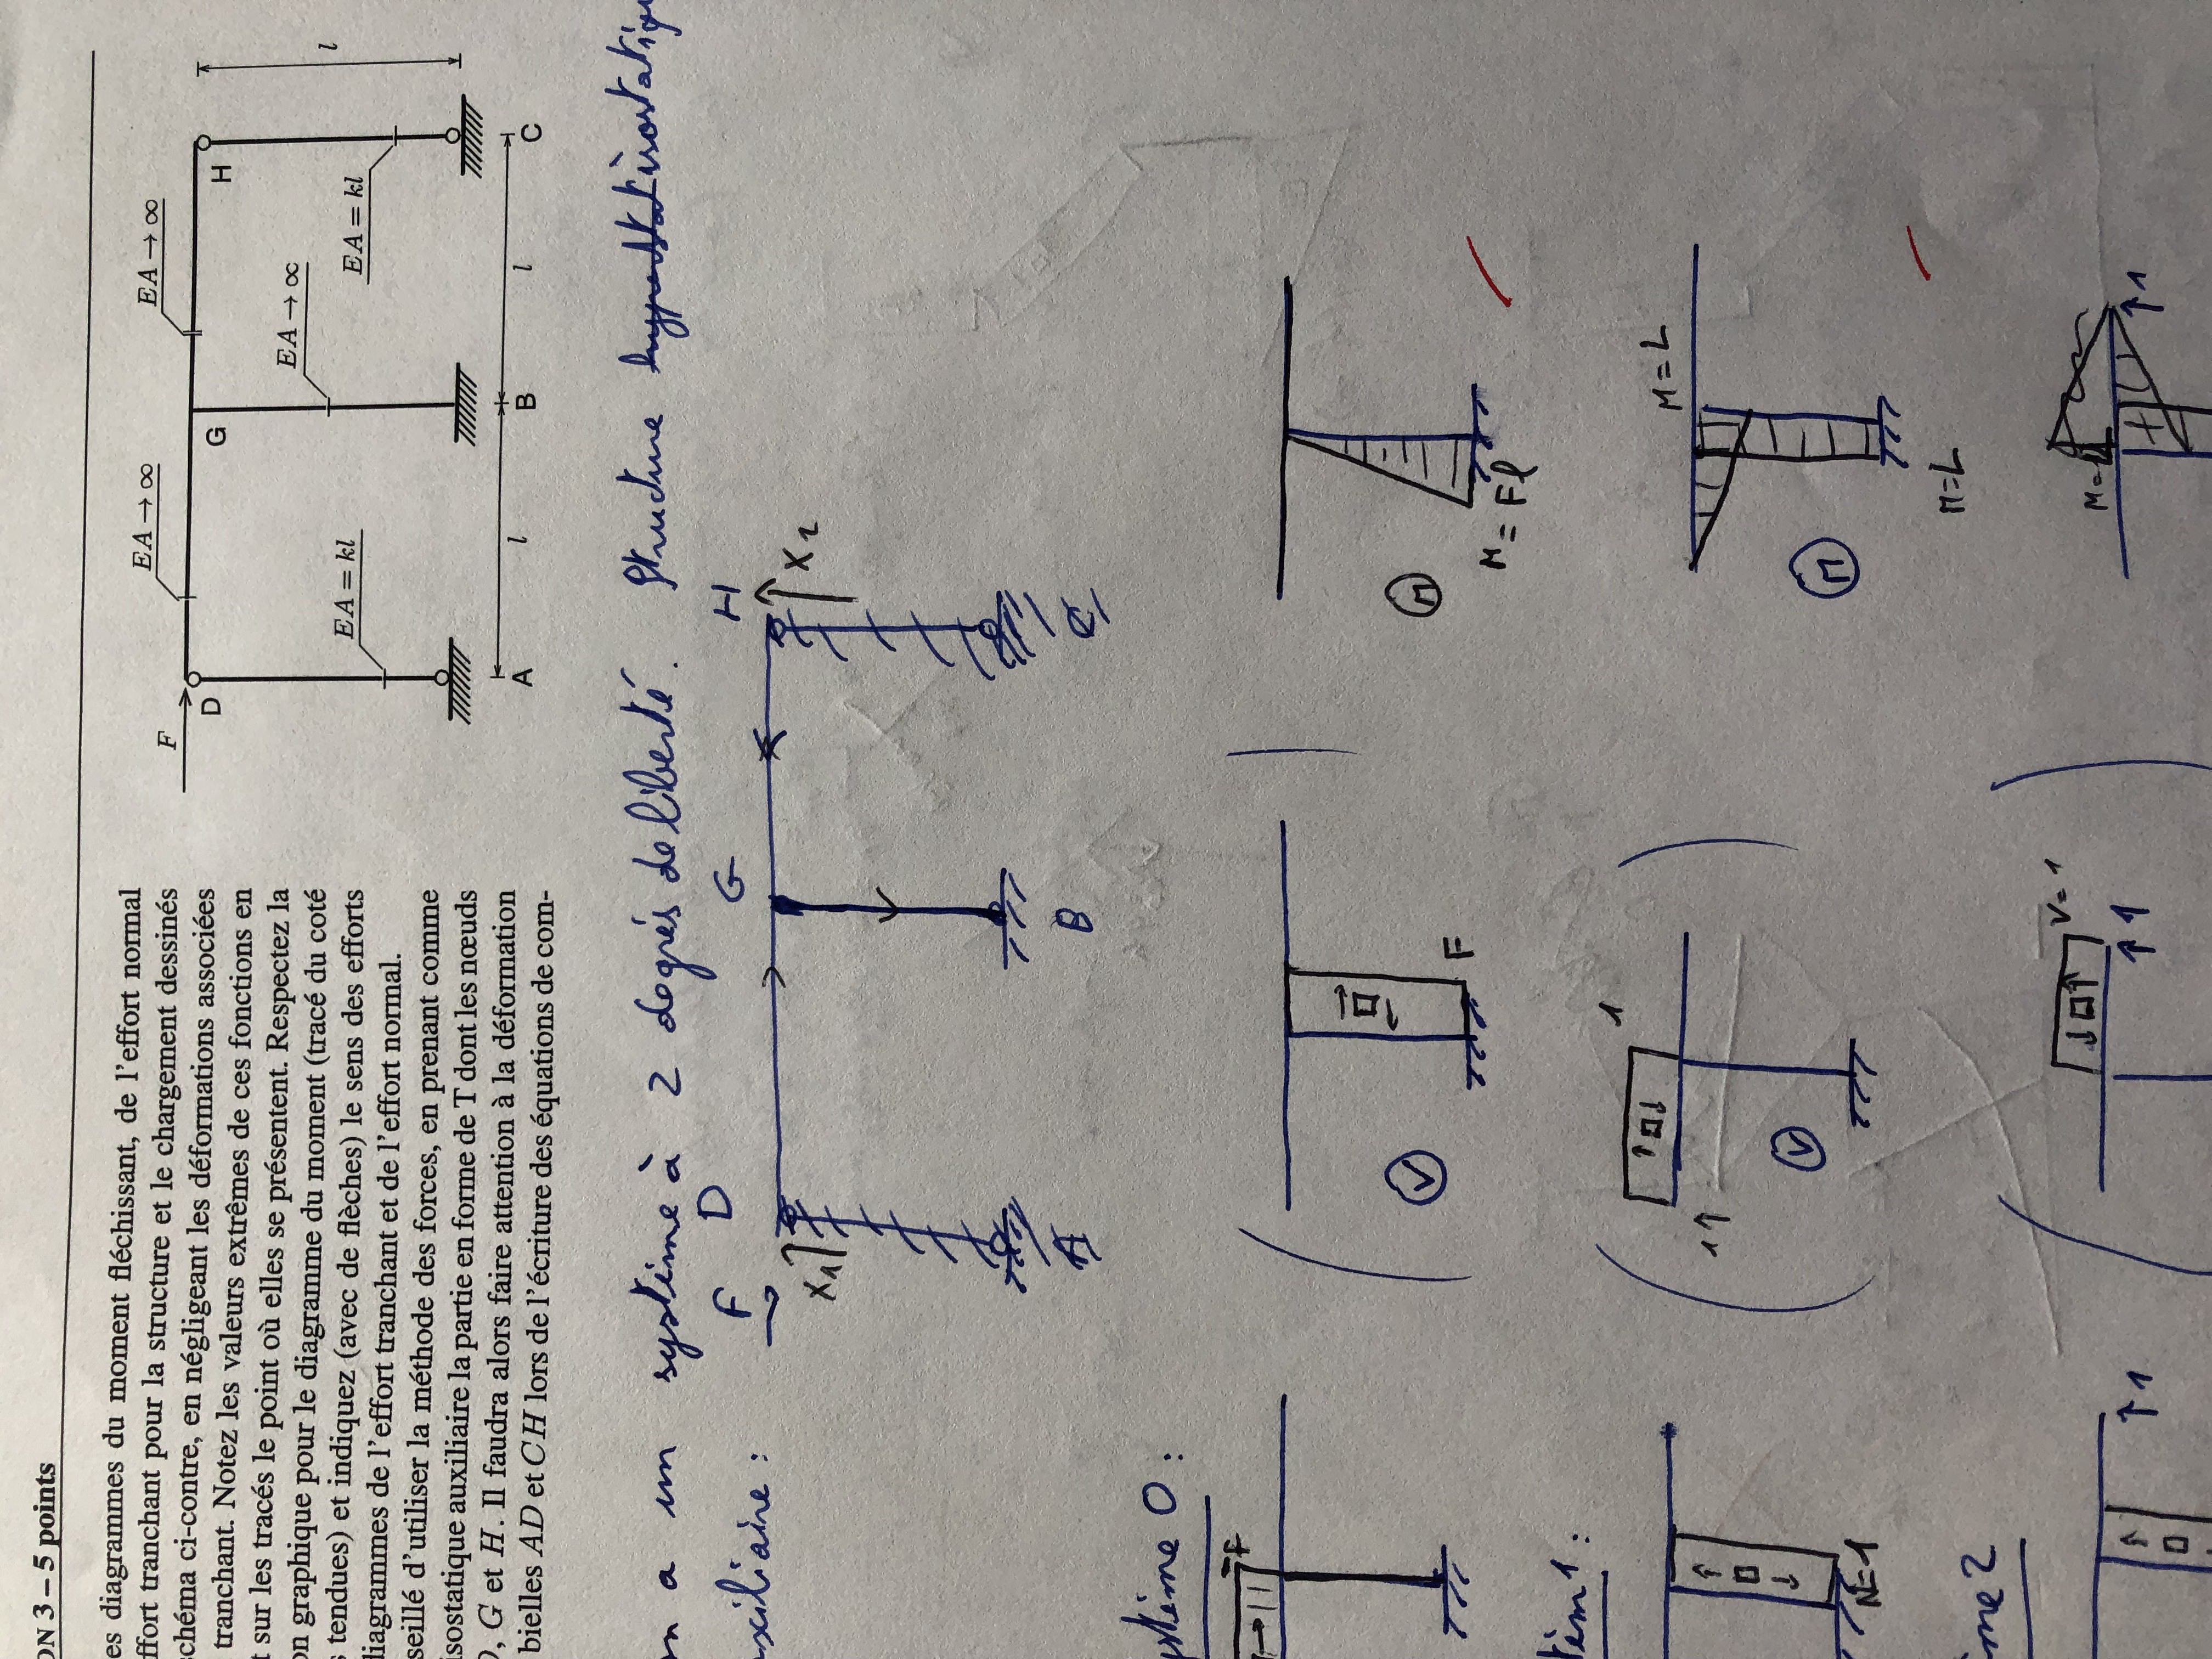 ON 3 – 5 points
es diagrammes du moment fléchissant, de l'effort normal
ffort tranchant pour la structure et le chargement dessinés
schéma ci-contre, en négligeant les déformations associées
tranchant. Notez les valeurs extrêmes de ces fonctions en
t sur les tracés le point où elles se présentent. Respectez la
on graphique pour le diagramme du moment (tracé du coté
s tendues) et indiquez (avec de flèches) le sens des efforts
diagrammes de l'effort tranchant et de l'effort normal.
seillé d'utiliser la méthode des forces, en prenant comme
isostatique auxiliaire la partie en forme de T dont les nœuds
D, G et H. Il faudra alors faire attention à la déformation
bielles AD et CH lors de l'écriture des équations de com-
EA → ∞
EA → ∞
F
D
G
H
EA → ∞
EA = kl
EA = kl
l
A
l
B
l
C
on a un système à 2 degrés de liberté. Structure isostatiqu
uxiliaire :
F
D
G
H
X1
X2
A
B
C
ystème 0 :
F
V
F
M
M = Fl
tèm 1 :
N=1
1
1
V
M = L
M
M=L
ème 2
1
V= 1
1
M=
1